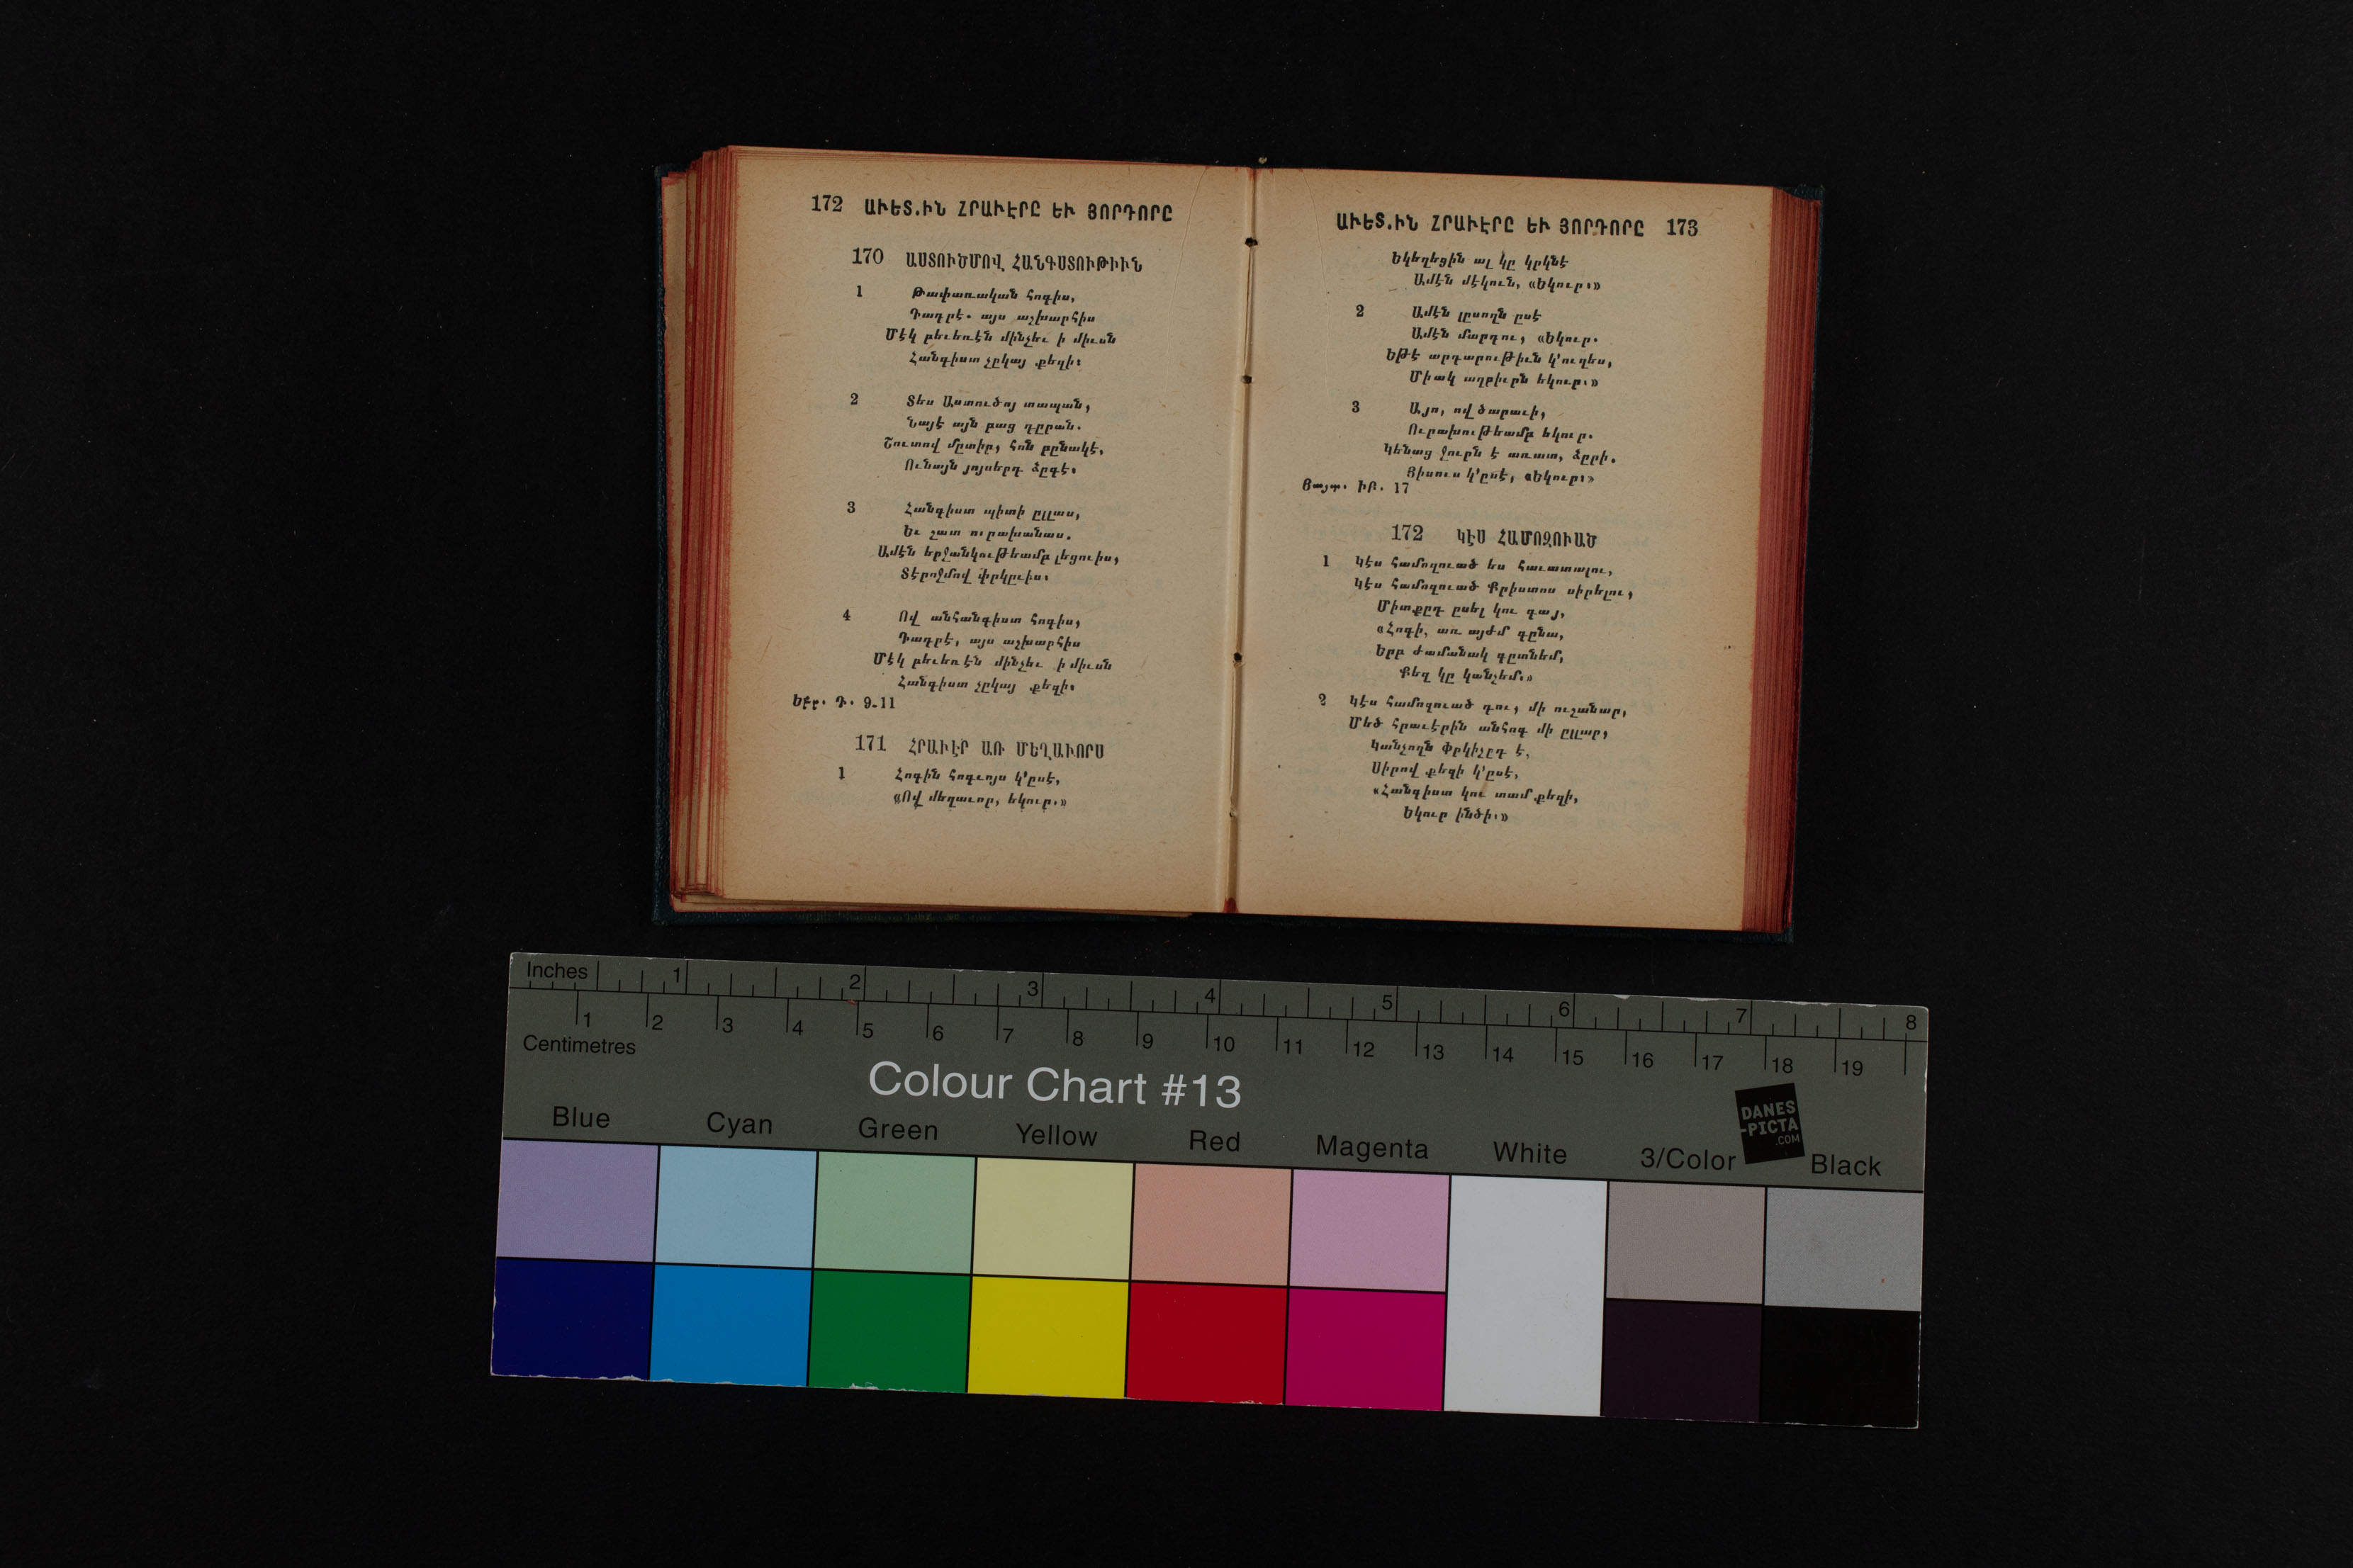 172 ԱՒԵՏ.ԻՆ ՀՐԱՒԷՐԸ ԵՒ ՅՈՐԴՈՐԸ
170 ԱՍՏՈՒԾՄՈՎ ՀԱՆԳՍՏՈՒԹԻՒՆ
1 Թափառական հոգիս,
Դադրէ. այս աշխարհիս
Մէկ բեւեռէն մինչեւ ի միւսն
Հանգիստ չըկայ քեզի։
2 Տես Աստուծոյ տապան,
Նայէ այն բաց դըրան.
Շուտով մըտիր, հոն բընակէ,
Ունայն յոյսերդ ձըգէ։
3 Հանգիստ պիտի ըլլաս,
Եւ շատ ուրախանաս.
Ամէն երջանկութեամբ լեցուիս,
Տէրոջմով փրկըւիս։
4 Ով անհանգիստ հոգիս,
Դադրէ, այս աշխարհիս
Մէկ բեւեռէն մինչեւ ի միւսն
Հանգիստ չըկայ քեզի։
Եբր. Դ. 9-11
171 ՀՐԱՒԷՐ ԱՌ ՄԵՂԱՒՈՐՍ
1 Հոգին հոգւոյս կ'ըսէ,
«Ով մեղաւոր, եկուր.»
ԱՒԵՏ.ԻՆ ՀՐԱՒԷՐԸ ԵՒ ՅՈՐԴՈՐԸ 173
Եկեղեցին ալ կը կրկնէ
Ամէն մէկուն, «Եկուր։»
2 Ամէն լըսողն ըսէ
Ամէն մարդու, «Եկուր.
Եթէ արդարութիւն կ'ուզես,
Միակ աղբիւրն եկուր։»
3 Այո, ով ծարաւի,
Ուրախութեամբ եկուր.
Կենաց ջուրն է առատ, ձըրի.
Յիսուս կ'ըսէ, «Եկուր։»
Յայտ. ԻԲ. 17
172 ԿԷՍ ՀԱՄՈԶՈՒԱԾ
1 Կէս համոզուած ես հաւատալու,
Կէս համոզուած Քրիստոս սիրելու,
Միտքըդ ըսել կու գայ,
«Հոգի, առ այժմ գընա,
Երբ ժամանակ գըտնեմ,
Քեզ կը կանչեմ.»
2 Կէս համոզուած դու, մի ուշանար,
Մեծ հրաւէրին անհոգ մի ըլլար,
Կանչողն Փրկիչըդ է,
Սիրով քեզի կ'ըսէ,
«Հանգիստ կու տամ քեզի,
Եկուր ինծի։»
Inches 1 2 3 4 5 6 7 8
1 2 3 4 5 6 7 8 9 10 11 12 13 14 15 16 17 18 19
Centimetres
Colour Chart #13
DANES
-PICTA
.COM
Blue Cyan Green Yellow Red Magenta White 3/Color Black